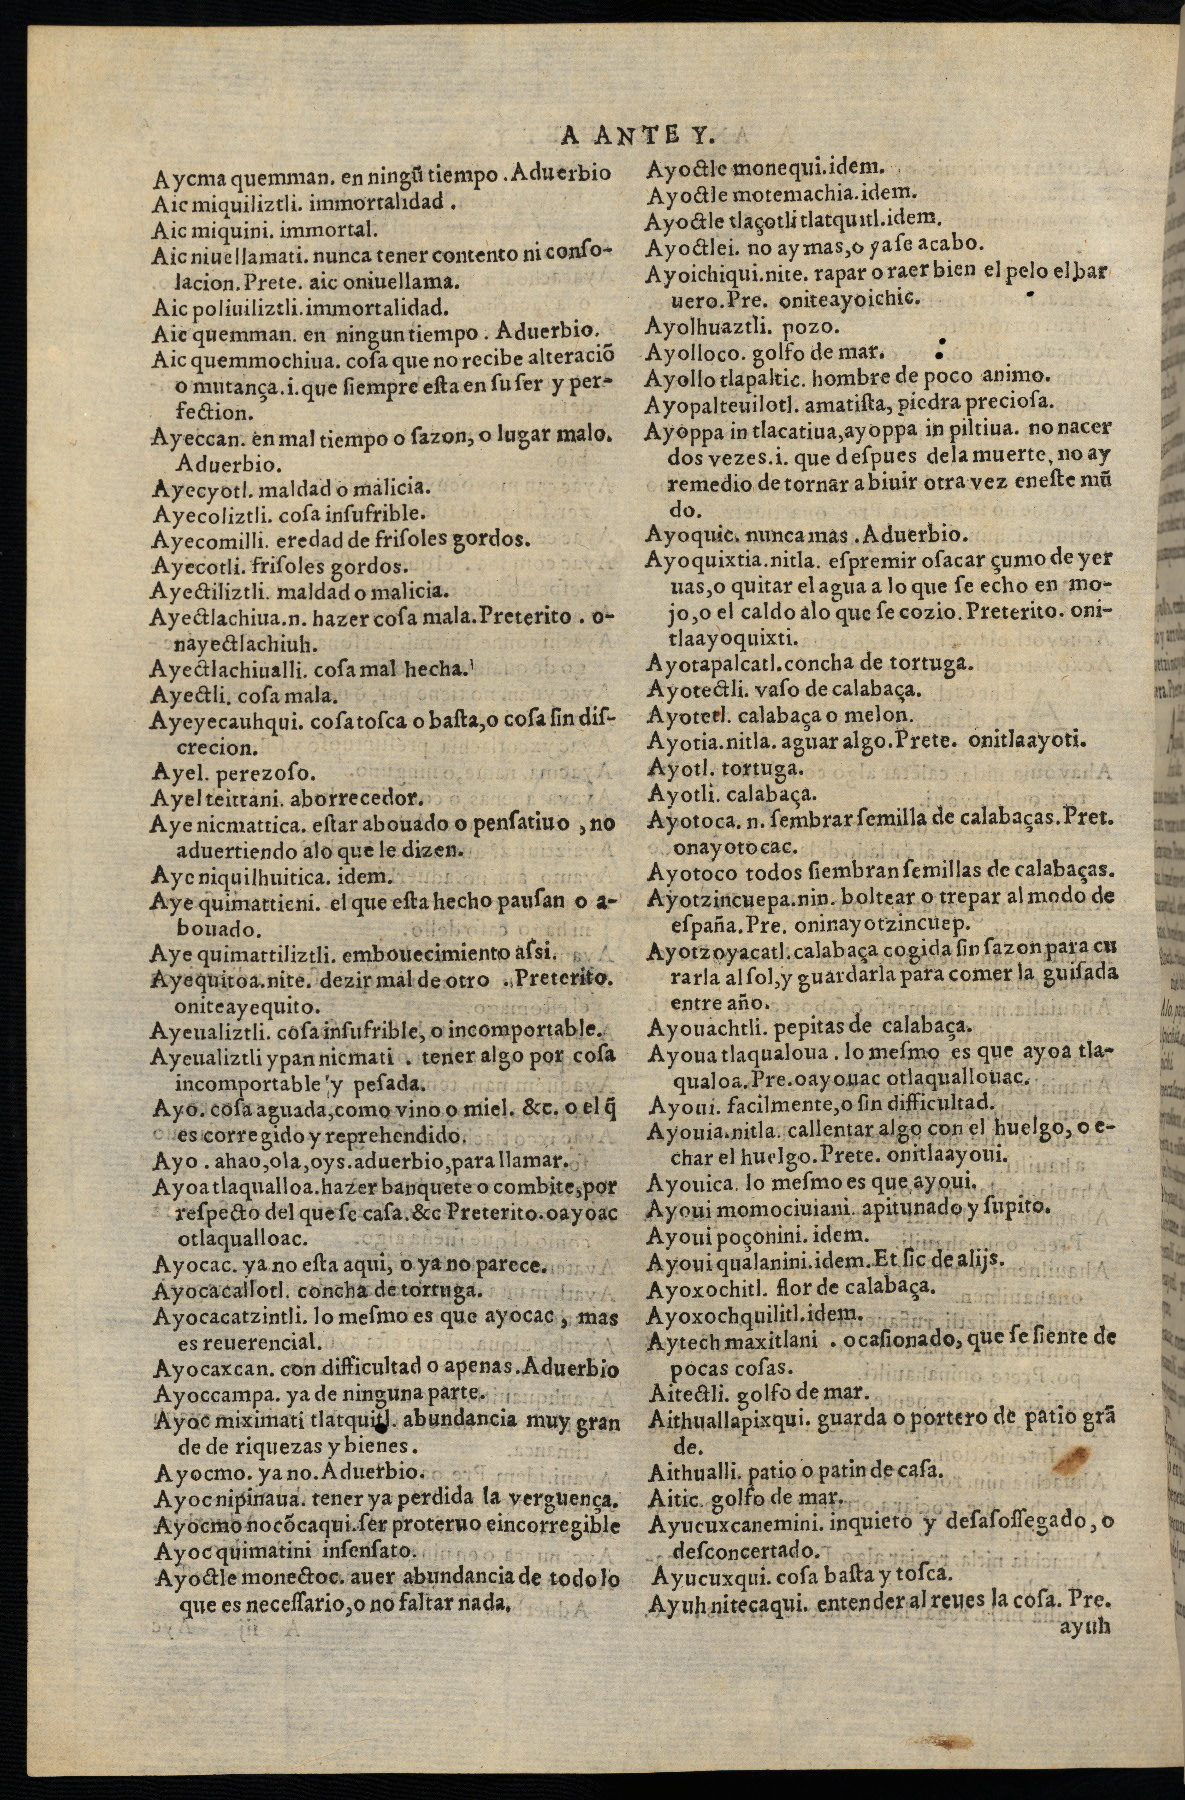 A ANTE Y.
Aycma quemman. en ningũ tiempo. Aduerbio
Aic miquiliztli. immortalidad.
Aic miquini. immortal.
Aic niuellamati. nunca tener contento ni conſo-
lacion. Prete. aic oniuellama.
Aic poliuiliztli. immortalidad.
Aic quemman. en ningun tiempo. Aduerbio.
Aic quemmochiua. coſa que no recibe alteraciõ
o mutança. i. que ſiempre eſta en ſu ſer y per-
fection.
Ayeccan. en mal tiempo o ſazon, o lugar malo.
Aduerbio.
Ayecyotl. maldad o malicia.
Ayecoliztli. coſa inſufrible.
Ayecomilli. eredad de friſoles gordos.
Ayecotli. friſoles gordos.
Ayectiliztli. maldad o malicia.
Ayectlachiua. n. hazer coſa mala. Preterito. o-
nayectlachiuh.
Ayectlachiualli. coſa mal hecha.
Ayectli. coſa mala.
Ayeyecauhqui. coſa toſca o baſta, o coſa ſin diſ-
crecion.
Ayel. perezoſo.
Ayel teittani. aborrecedor.
Aye nicmattica. eſtar abouado o penſatiuo, no
aduertiendo alo que le dizen.
Aye niquilhuitica. idem.
Aye quimattieni. el que eſta hecho pauſan o a-
bouado.
Aye quimattiliztli. embouecimiento aſſi.
Ayequitoa. nite. dezir mal de otro. Preterito.
oniteayequito.
Ayeualiztli. coſa inſufrible, o incomportable.
Ayeualiztli ypan nicmati. tener algo por coſa
incomportable y peſada.
Ayo. coſa aguada, como vino o miel. &c. o el q̃
es corregido y reprehendido.
Ayo. ahao, ola, oys. aduerbio, para llamar.
Ayoatlaqualloa. hazer banquete o combite, por
reſpecto del que ſe caſa. &c Preterito. oayoac
otlaqualloac.
Ayocac. ya no eſta aqui, o ya no parece.
Ayocacallotl. concha de tortuga.
Ayocacatzintli. lo meſmo es que ayocac, mas
es reuerencial.
Ayocaxcan. con difficultad o apenas. Aduerbio
Ayoccampa. ya de ninguna parte.
Ayoc miximati tlatquitl. abundancia muy gran
de de riquezas y bienes.
Ayocmo. ya no. Aduerbio.
Ayoc nipinaua. tener ya perdida la verguença.
Ayocmo nocõcaqui. ſer proteruo e incorregible
Ayoc quimatini inſenſato.
Ayoctle monectoc. auer abundancia de todo lo
que es neceſſario, o no faltar nada.
Ayoctle monequi. idem.
Ayoctle motemachia. idem.
Ayoctle tlaçotli tlatquitl. idem.
Ayoctlei. no ay mas, o ya ſe acabo.
Ayoichiqui. nite. rapar o raer bien el pelo el bar
uero. Pre. oniteayoichic.
Ayolhuaztli. pozo.
Ayolloco. golfo de mar.
Ayollo tlapaltic. hombre de poco animo.
Ayopalteuilotl. amatiſta, piedra precioſa.
Ayoppa in tlacatiua, ayoppa in piltiua. no nacer
dos vezes. i. que deſpues dela muerte, no ay
remedio de tornar a biuir otra vez eneſte mũ
do.
Ayoquic. nunca mas. Aduerbio.
Ayoquixtia. nitla. eſpremir oſacar çumo de yer
uas, o quitar el agua a lo que ſe echo en mo-
jo, o el caldo alo que ſe cozio. Preterito. oni-
tlaayoquixti.
Ayotapalcatl. concha de tortuga.
Ayotectli. vaſo de calabaça.
Ayotetl. calabaça o melon.
Ayotia. nitla. aguar algo. Prete. onitlaayoti.
Ayotl. tortuga.
Ayotli. calabaça.
Ayotoca. n. ſembrar ſemilla de calabaças. Pret.
onayotocac.
Ayotoco todos ſiembran ſemillas de calabaças.
Ayotzincuepa. nin. boltear o trepar al modo de
eſpaña. Pre. oninayotzincuep.
Ayotzoyacatl. calabaça cogida ſin ſazon para cu
rarla al ſol, y guardarla para comer la guiſada
entre año.
Ayouachtli. pepitas de calabaça.
Ayoua tlaqualoua. lo meſmo es que ayoa tla-
qualoa. Pre. oayouac otlaquallouac.
Ayoui. facilmente, o ſin difficultad.
Ayouia. nitla. callentar algo con el huelgo, o e-
char el huelgo. Prete. onitlaayoui.
Ayouica. lo meſmo es que ayoui.
Ayoui momociuiani. apitunado y ſupito.
Ayoui poçonini. idem.
Ayoui qualanini. idem. Et ſic de alijs.
Ayoxochitl. flor de calabaça.
Ayoxochquilitl. idem.
Aytech maxitlani. ocaſionado, que ſe ſiente de
pocas coſas.
Aitectli. golfo de mar.
Aithuallapixqui. guarda o portero de patio grã
de.
Aithualli. patio o patin de caſa.
Aitic. golfo de mar.
Ayucuxcanemini. inquieto y deſaſoſſegado, o
deſconcertado.
Ayucuxqui. coſa baſta y toſca.
Ayuh nitecaqui. entender al reues la coſa. Pre.
ayuh